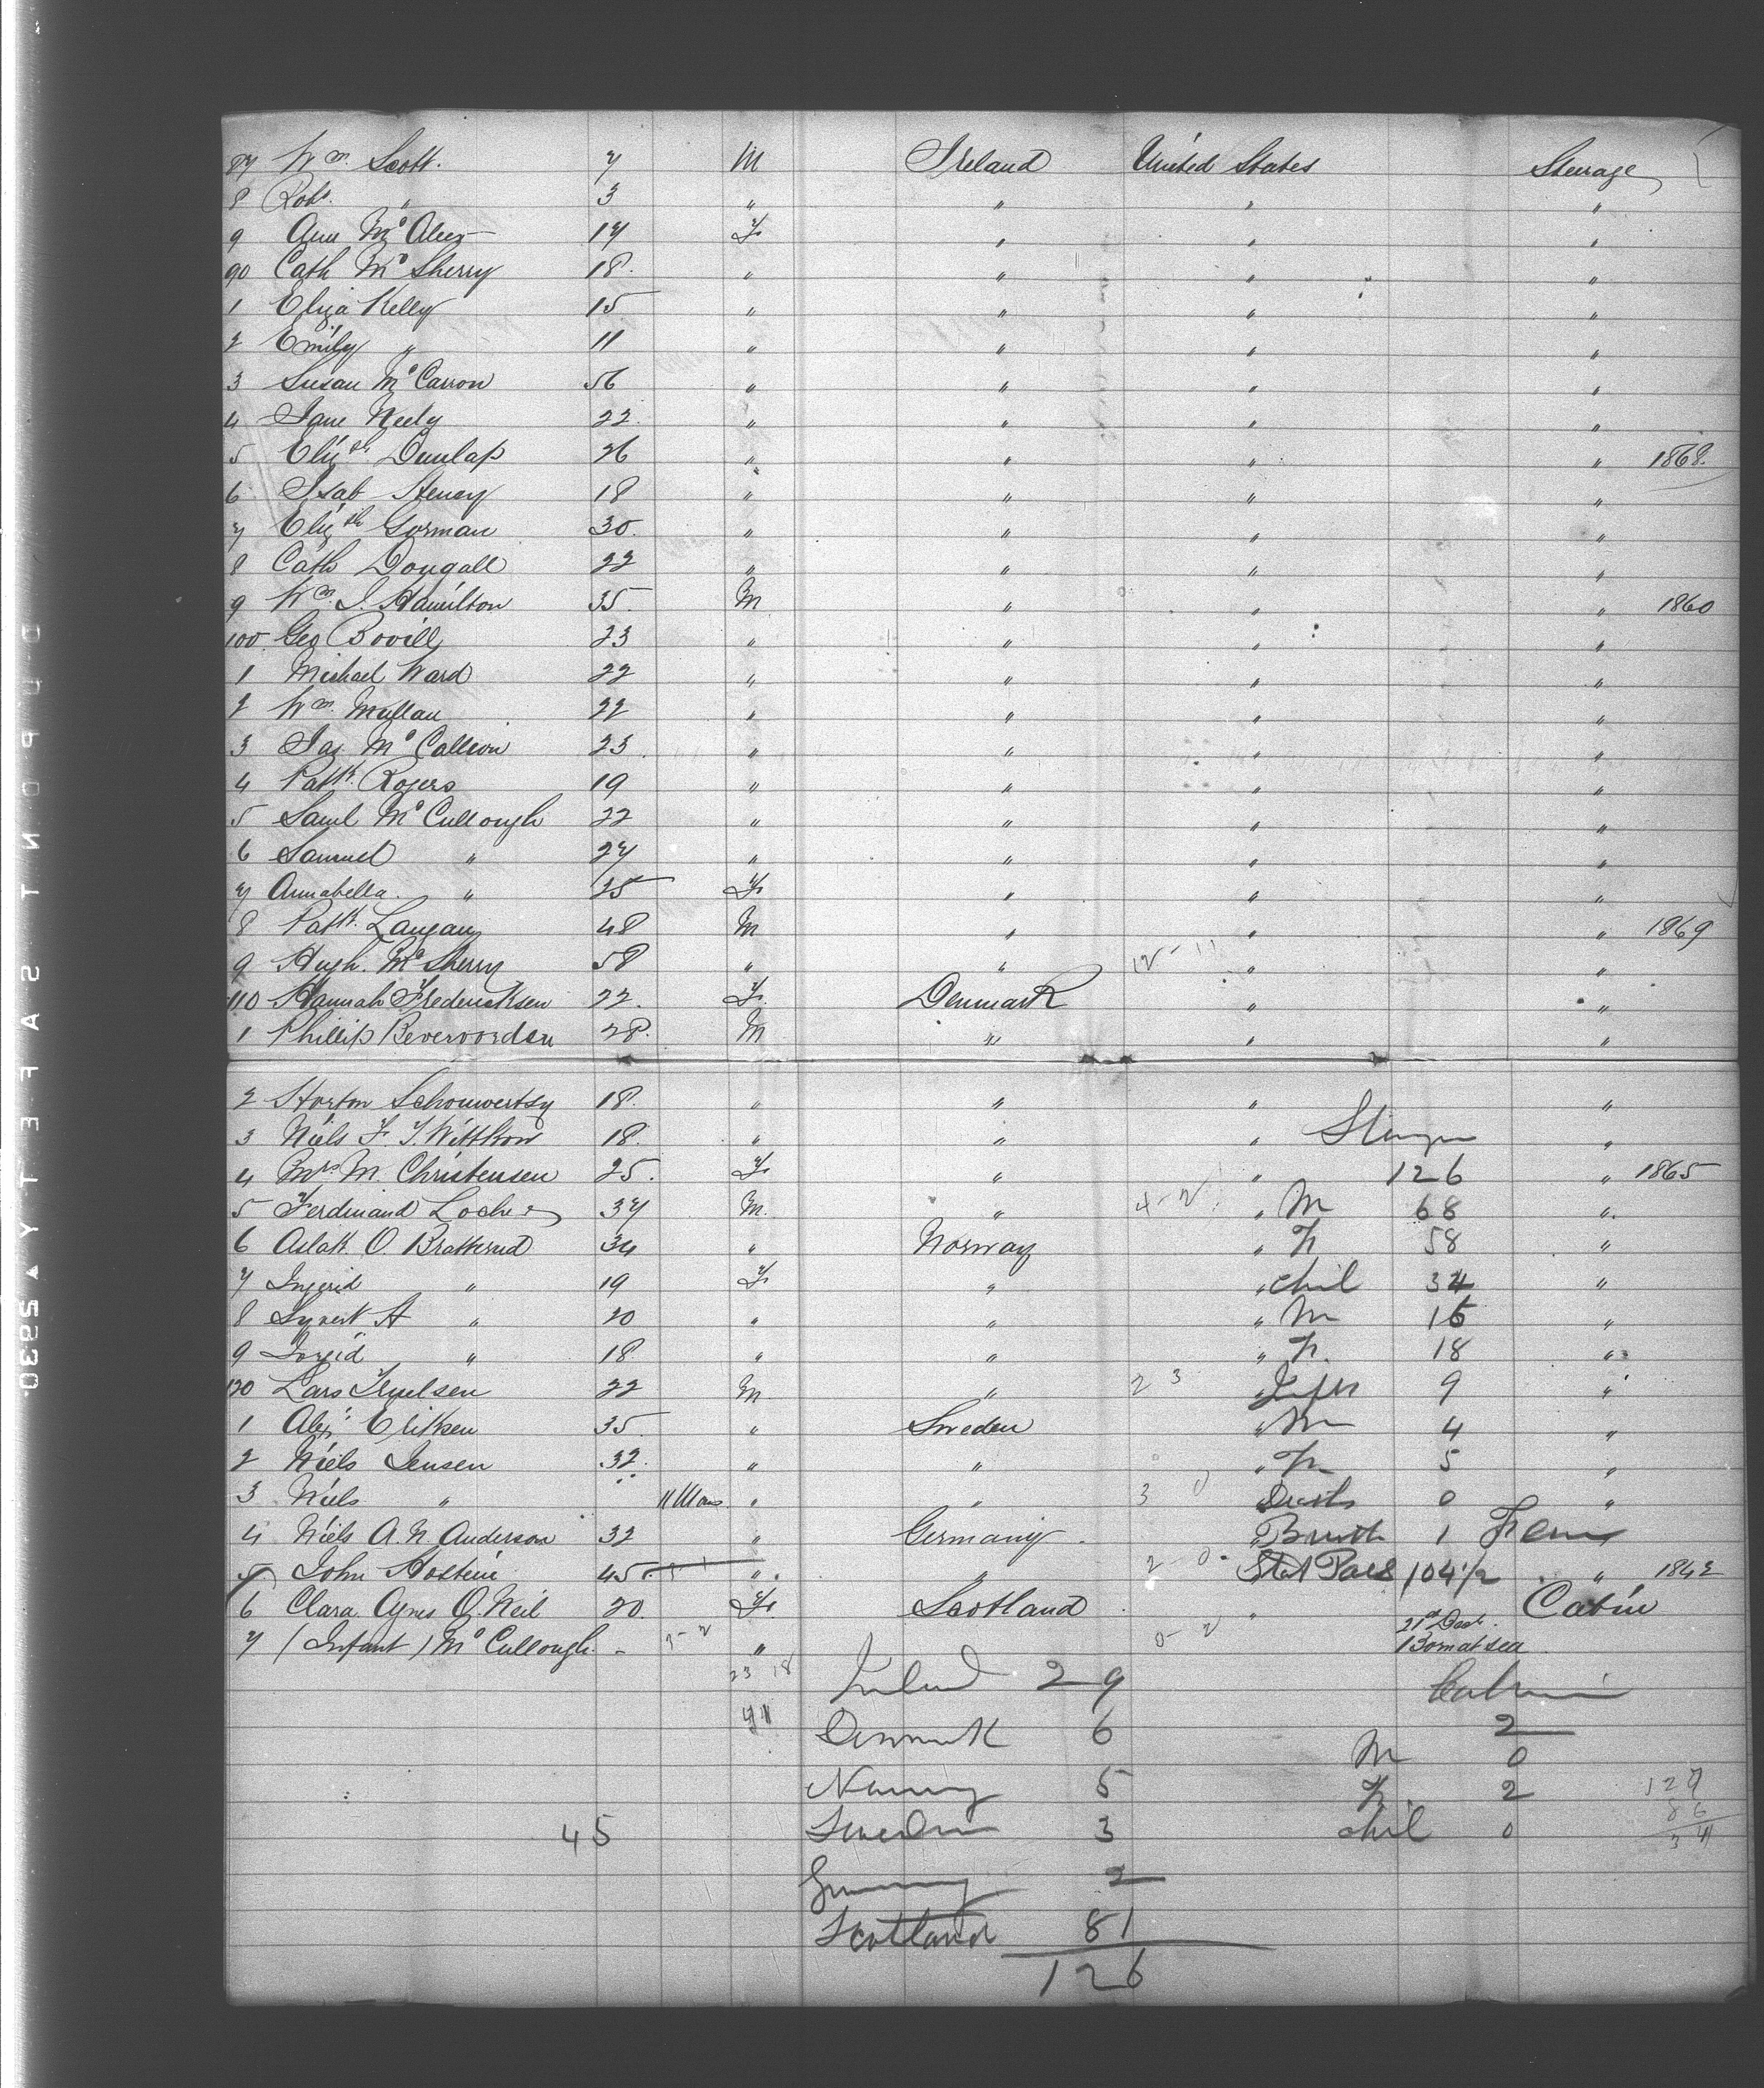 87 Wm. Scott. 7 M Ireland United States Steerage
8 Robt. " 3 " " " "
9 Ann McAleer 17 F " " "
90 Cath McSherry 18. " " " "
1 Eliza Kelly 15 " " " "
2 Emily " 11 " " " "
3 Susan McCarron 56 " " " "
4 Jane Neely 22. " " " "
5 Elizth. Dunlap 26 " " " " 1868.
6 Isab Henry 18 " " " "
7 Elizth Gorman 30. " " " "
8 Cath Dougall 22 " " " "
9 Wm. J. Hamilton 35. M " " " 1860
100. Geo Bovill 23 " " " "
1 Michael Ward 22 " " " "
2 Wm. Mullan 22 " " " "
3 Jas McCallion 23. " " " "
4 Patk. Rogers 19 " " " "
5 Saml McCullough 22 " " " "
6 Samuel " 27 " " " "
7 Annabella. " 25 F " " "
8 Patk. Langan 48 M " " " 1869
9 Hugh. McSherry 58 " " 12-11 " "
110 Hannah Fredericksen 22. F. Denmark " "
1 Phillip Bevervorden 28. M " " "
2 Horton Schouwertsy 18. " " " "
3 Niels F. T. Witthow 18. " " " "
4 Mrs M. Christensen 25. F " " 126 " 1865
5 Ferdinand Locher 37 M. " 4-2 " M 68 "
6 Aslak O Bratterud 34 " Norway " F 58 "
7 Ingrid " 19 F " " chil 34 "
8 Syvert A " 20 " " " M 16 "
9 " 18. " " " F. 18 "
120 Lars Truelsen 22 M. " 2 3 " Infts 9 "
1 Alexr. Eriksen 35 " Sweden " M 4 "
2 Niels Jensen 32. " " " F 5 "
3 Niels " 11 Mos. " " 3 0 " Deaths 0 "
4 Niels A. N. Anderson 32 " Germany " Birth 1 Fem
5 John Hosteni 45. " " 2-0 " Stat Pass 104 1/2 " 1842
6 Clara Agnes O'Neil 20. F. Scotland " Cabin
7 (Infant) McCullough. - " 0-2 21st Dect. Born at sea
23 18 Ireland 29 Cabin
41 Denmark 6 2
M 0
Norway 5 F. 2 127
86
45 Sweden 3 chil 0 3 41
Germany 2
Scotland 81
126
DUPONT SAFETY 2530